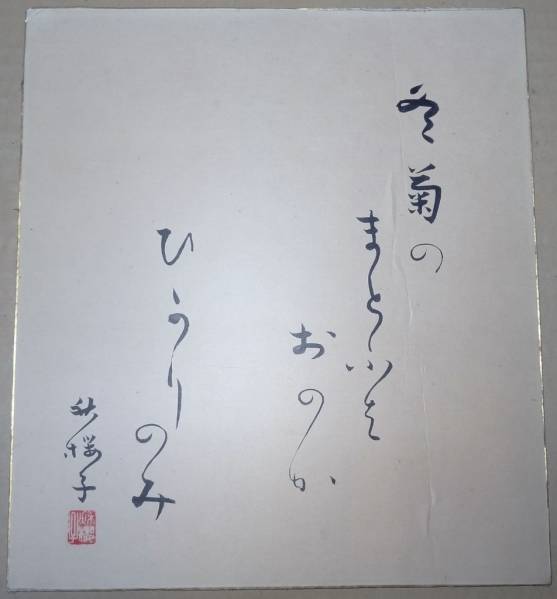 冬菊の
まとふは
おのか
ひかりのみ
秋桜子